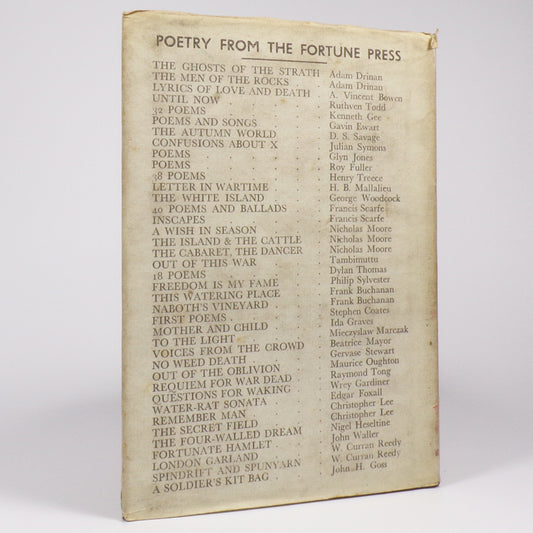 POETRY FROM THE FORTUNE PRESS
THE GHOSTS OF THE STRATH Adam Drinan
THE MEN OF THE ROCKS . Adam Drinan
LYRICS OF LOVE AND DEATH . A. Vincent Bowen
UNTIL NOW . . . . . Ruthven Todd
32 POEMS . . . . . Kenneth Gee
POEMS AND SONGS . . . Gavin Ewart
THE AUTUMN WORLD . . . D. S. Savage
CONFUSIONS ABOUT X . . . Julian Symons
POEMS . . . . . . Glyn Jones
POEMS . . . . . . Roy Fuller
38 POEMS . . . . . Henry Treece
LETTER IN WARTIME . . . H. B. Mallalieu
THE WHITE ISLAND . . . George Woodcock
40 POEMS AND BALLADS . . Francis Scarfe
INSCAPES . . . . . Francis Scarfe
A WISH IN SEASON . . . Nicholas Moore
THE ISLAND & THE CATTLE . . Nicholas Moore
THE CABARET, THE DANCER . . Nicholas Moore
OUT OF THIS WAR . . . Tambimuttu
18 POEMS . . . . . Dylan Thomas
FREEDOM IS MY FAME . . . Philip Sylvester
THIS WATERING PLACE . . . Frank Buchanan
NABOTH'S VINEYARD . . . Frank Buchanan
FIRST POEMS . . . . . Stephen Coates
MOTHER AND CHILD . . . Ida Graves
TO THE LIGHT . . . . Mieczyslaw Marczak
VOICES FROM THE CROWD . . Beatrice Mayor
NO WEED DEATH . . . . Gervase Stewart
OUT OF THE OBLIVION . . . Maurice Oughton
REQUIEM FOR WAR DEAD . . Raymond Tong
QUESTIONS FOR WAKING . . Wrey Gardiner
WATER-RAT SONATA . . . Edgar Foxall
REMEMBER MAN . . . . Christopher Lee
THE SECRET FIELD . . . Christopher Lee
THE FOUR-WALLED DREAM . . Nigel Heseltine
FORTUNATE HAMLET . . . John Waller
LONDON GARLAND . . . W. Curran Reedy
SPINDRIFT AND SPUNYARN . . W. Curran Reedy
A SOLDIER'S KIT BAG . . . John H. Goss